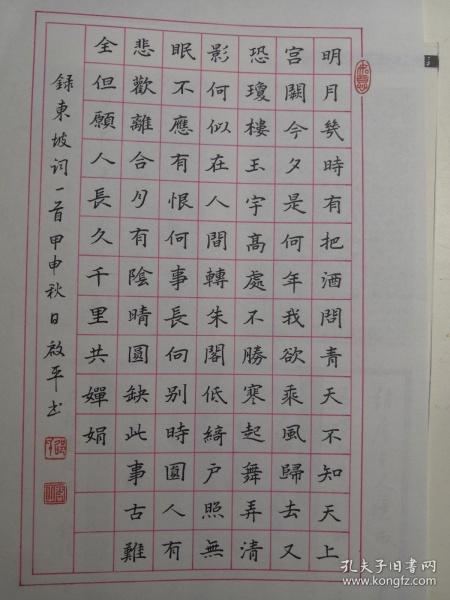 明月幾時有把酒問青天不知天上
宮闕今夕是何年我欲乘風歸去又
恐瓊樓玉宇高處不勝寒起舞弄清
影何似在人間轉朱閣低綺戶照無
眠不應有恨何事長向別時圓人有
悲歡離合月有陰晴圓缺此事古難
全但願人長久千里共嬋娟
録東坡词一首甲申秋日啟平书
孔夫子旧书网
www.kongfz.com